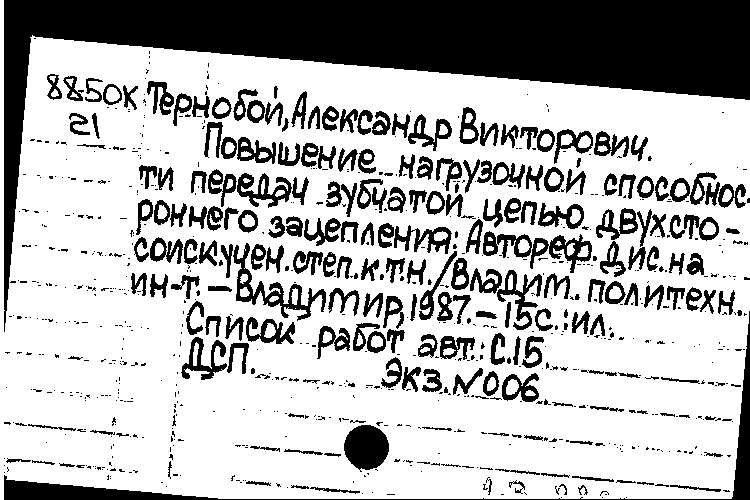 88-50К Тернобой, Александр Викторович.
21
Повышение нагрузочной способнос-
ти передач зубчатой цепью двухсто-
роннего зацепления: Автореф. дис. на
соиск. учен. степ. к.т.н. / Владим. политехн.
ин-т. – Владимир, 1987. – 15 с.: ил.
Список работ авт.: С. 15.
ДСП. Экз. № 006.